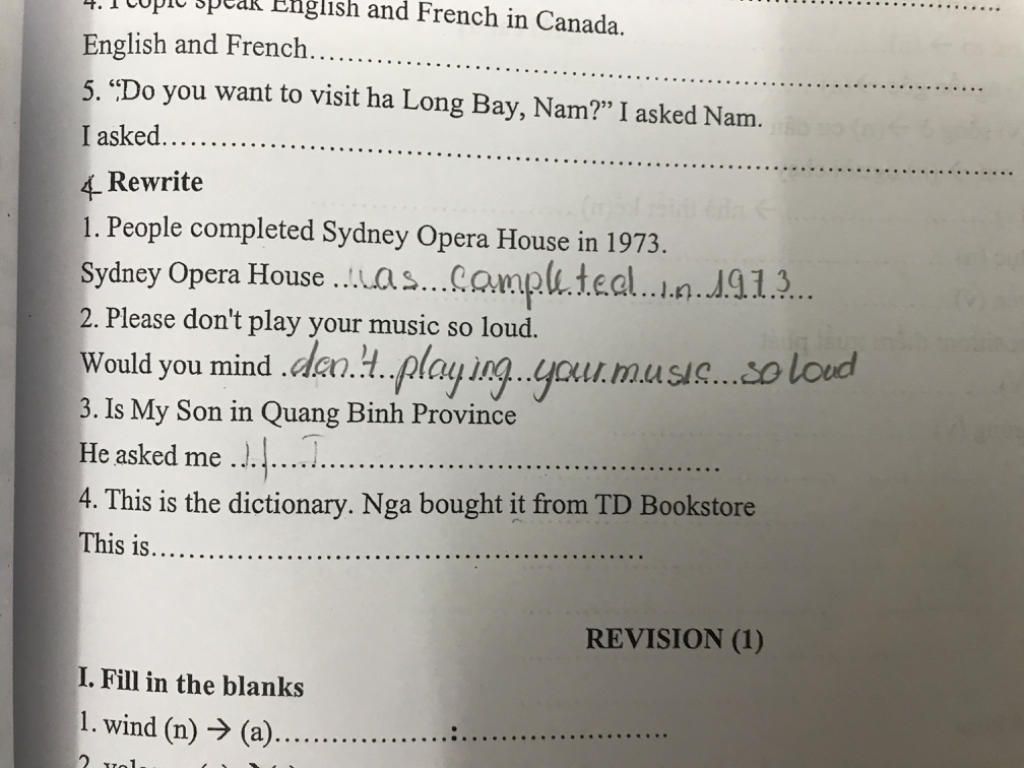 4. People speak English and French in Canada.
English and French....................
5. “Do you want to visit ha Long Bay, Nam?” I asked Nam.
I asked....................
4 Rewrite
1. People completed Sydney Opera House in 1973.
Sydney Opera House was completed in 1973
2. Please don't play your music so loud.
Would you mind don't playing your music so loud
3. Is My Son in Quang Binh Province
He asked me ....................
4. This is the dictionary. Nga bought it from TD Bookstore
This is....................
REVISION (1)
I. Fill in the blanks
1. wind (n) → (a)....................:....................
2.